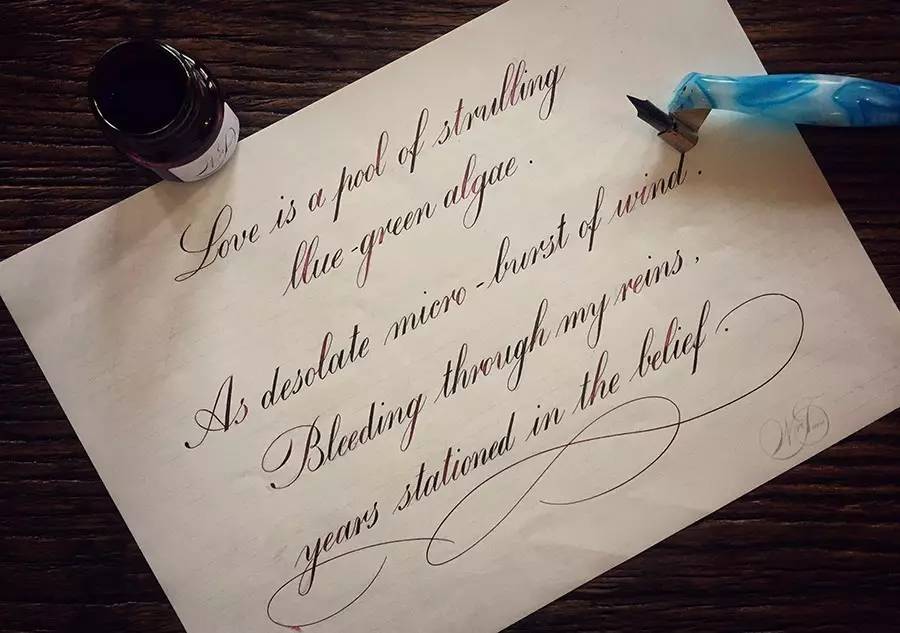 Love is a pool of strulling
llue-green algae.
As desolate micro-burst of wind.
Bleeding through my reins,
years stationed in the belief.